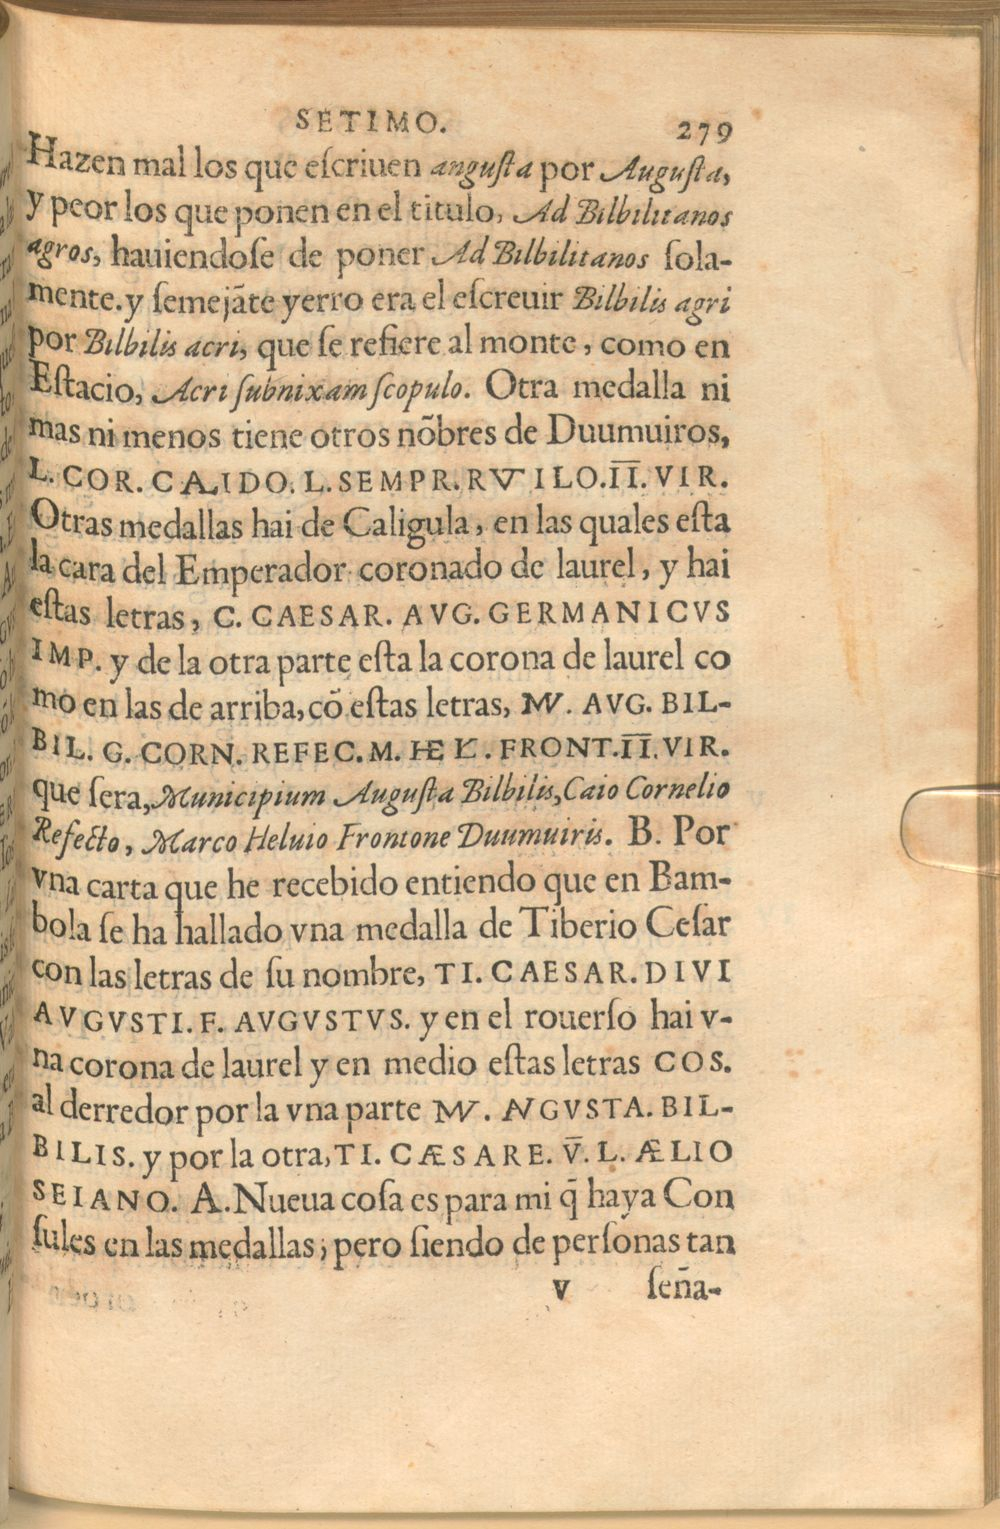 SETIMO. 279
Hazen mal los que eſcriuen anguſta por Auguſta,
y peor los que ponen en el titulo, Ad Bilbilitanos
agros, hauiendoſe de poner Ad Bilbilitanos ſola-
mente. y ſemejãte yerro era el eſcreuir Bilbilis agri
por Bilbilis acri, que ſe refiere al monte, como en
Eſtacio, Acri ſubnixam ſcopulo. Otra medalla ni
mas ni menos tiene otros nõbres de Duumuiros,
L. COR. CALIDO. L. SEMPR. RVTILO. II. VIR.
Otras medallas hai de Caligula, en las quales eſta
la cara del Emperador coronado de laurel, y hai
eſtas letras, C. CAESAR. AVG. GERMANICVS
IMP. y de la otra parte eſta la corona de laurel co
mo en las de arriba, cõ eſtas letras, MV. AVG. BIL-
BIL. G. CORN. REFEC. M. HEL. FRONT. II. VIR.
que ſera, Municipium Auguſta Bilbilis, Caio Cornelio
Refecto, Marco Heluio Frontone Duumuiris. B. Por
vna carta que he recebido entiendo que en Bam-
bola ſe ha hallado vna medalla de Tiberio Ceſar
con las letras de ſu nombre, TI. CAESAR. DIVI
AVGVSTI. F. AVGVSTVS. y en el rouerſo hai v-
na corona de laurel y en medio eſtas letras COS.
al derredor por la vna parte MV. AVGVSTA. BIL-
BILIS. y por la otra, TI. CÆSARE. V̅. L. ÆLIO
SEIANO. A. Nueua coſa es para mi q̃ haya Con
ſules en las medallas; pero ſiendo de perſonas tan
V ſeña-